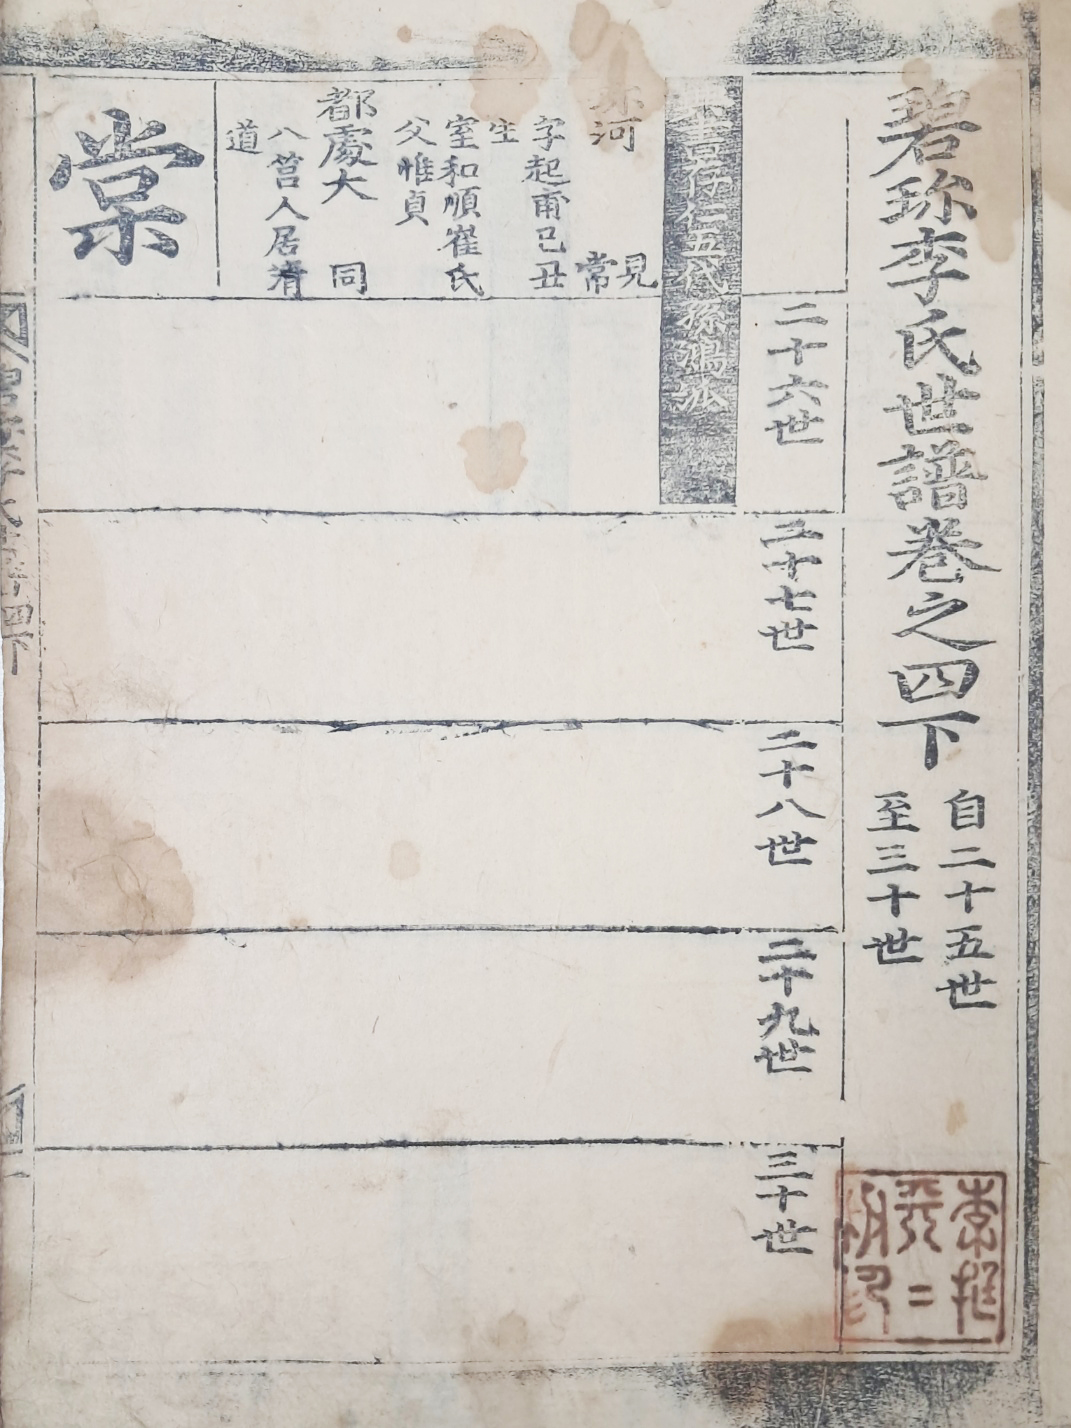 碧珍李氏世譜卷之四下
自二十五世
至三十世
二十六世
二十七世
二十八世
二十九世
三十世
仁五代孫鴻派
河
見
常
字起甫己丑
生
室和順崔氏
父惟貞
都慶大
同
八莒人居清
道
棠
四下